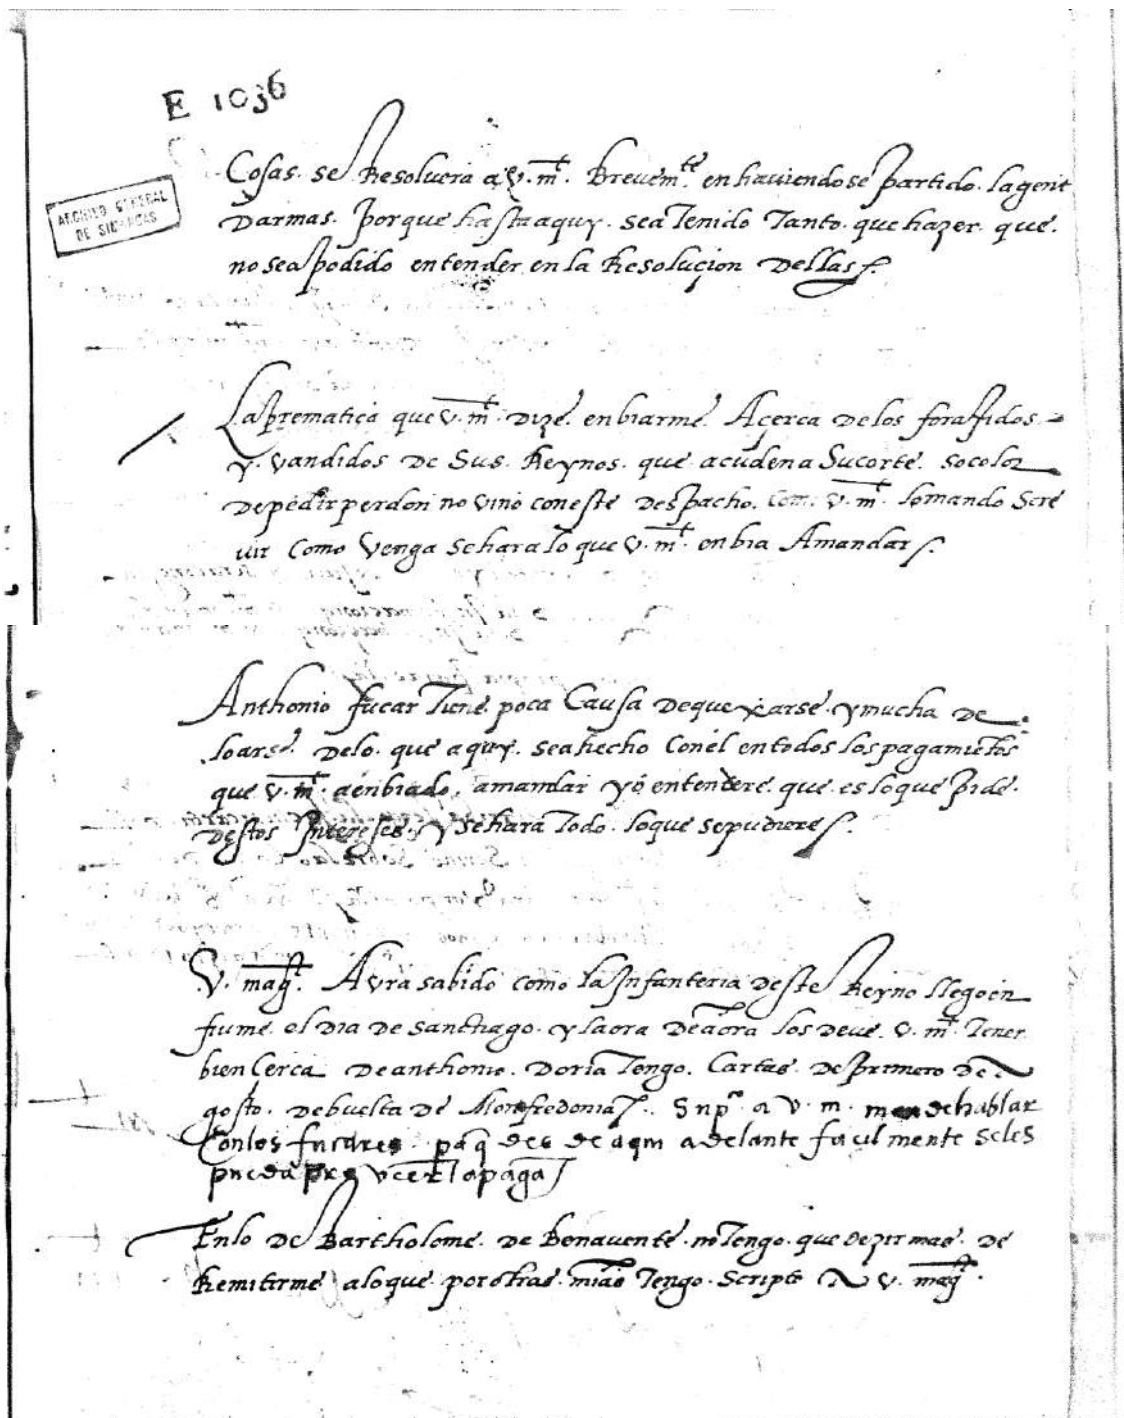 E 1036
ARCHIVO GENERAL
DE SIMANCAS
Cosas. se Resoluera a v. mt. Breuemte. en hauiendose partido. la gente
Darmas. porque hasta aquy. sea Tenido Tanto. que hazer. que.
no sea podido entender en la Resoluçion Dellas
La prematiça que v. mt. Dize. enbiarme. Açerca De los foraxidos
y. vandidos De Sus. Reynos. que acuden a Su corte. so color
De pedir perdon no vino con este Despacho. Com. v. mt. lo mando Scre
uir Como Venga se hara lo que v. mt. enbia A mandar
Anthonio fucar Tiene. poca Causa De quexarse. y mucha De
loarse. Delo. que aquy. sea hecho con el en todos los pagamientos
que v. mt. a enbiado. a mandar yo entendere. que. es lo que pide.
Destos Intereses. y se hara Todo. lo que se pudiere
V. magt. Avra sabido como la Infanteria Deste Reyno llego en
fiume. el Dia De Sanctiago. y la ora De aora los Deve. v. mt. Tener
bien Cerca De anthonio. Doria Tengo. Cartas. De primero De A
gosto. De buelta De Monfredonia. Supco. a v. m. mande hablar
Con los fucares. pa q des de aqui adelante facilmente se les
pueda la paga
En lo De Bartholome. De Benavente. no Tengo. que Dezir mas. De
Remitirme a lo que. por otras. mias Tengo. Scripto A v. magt.